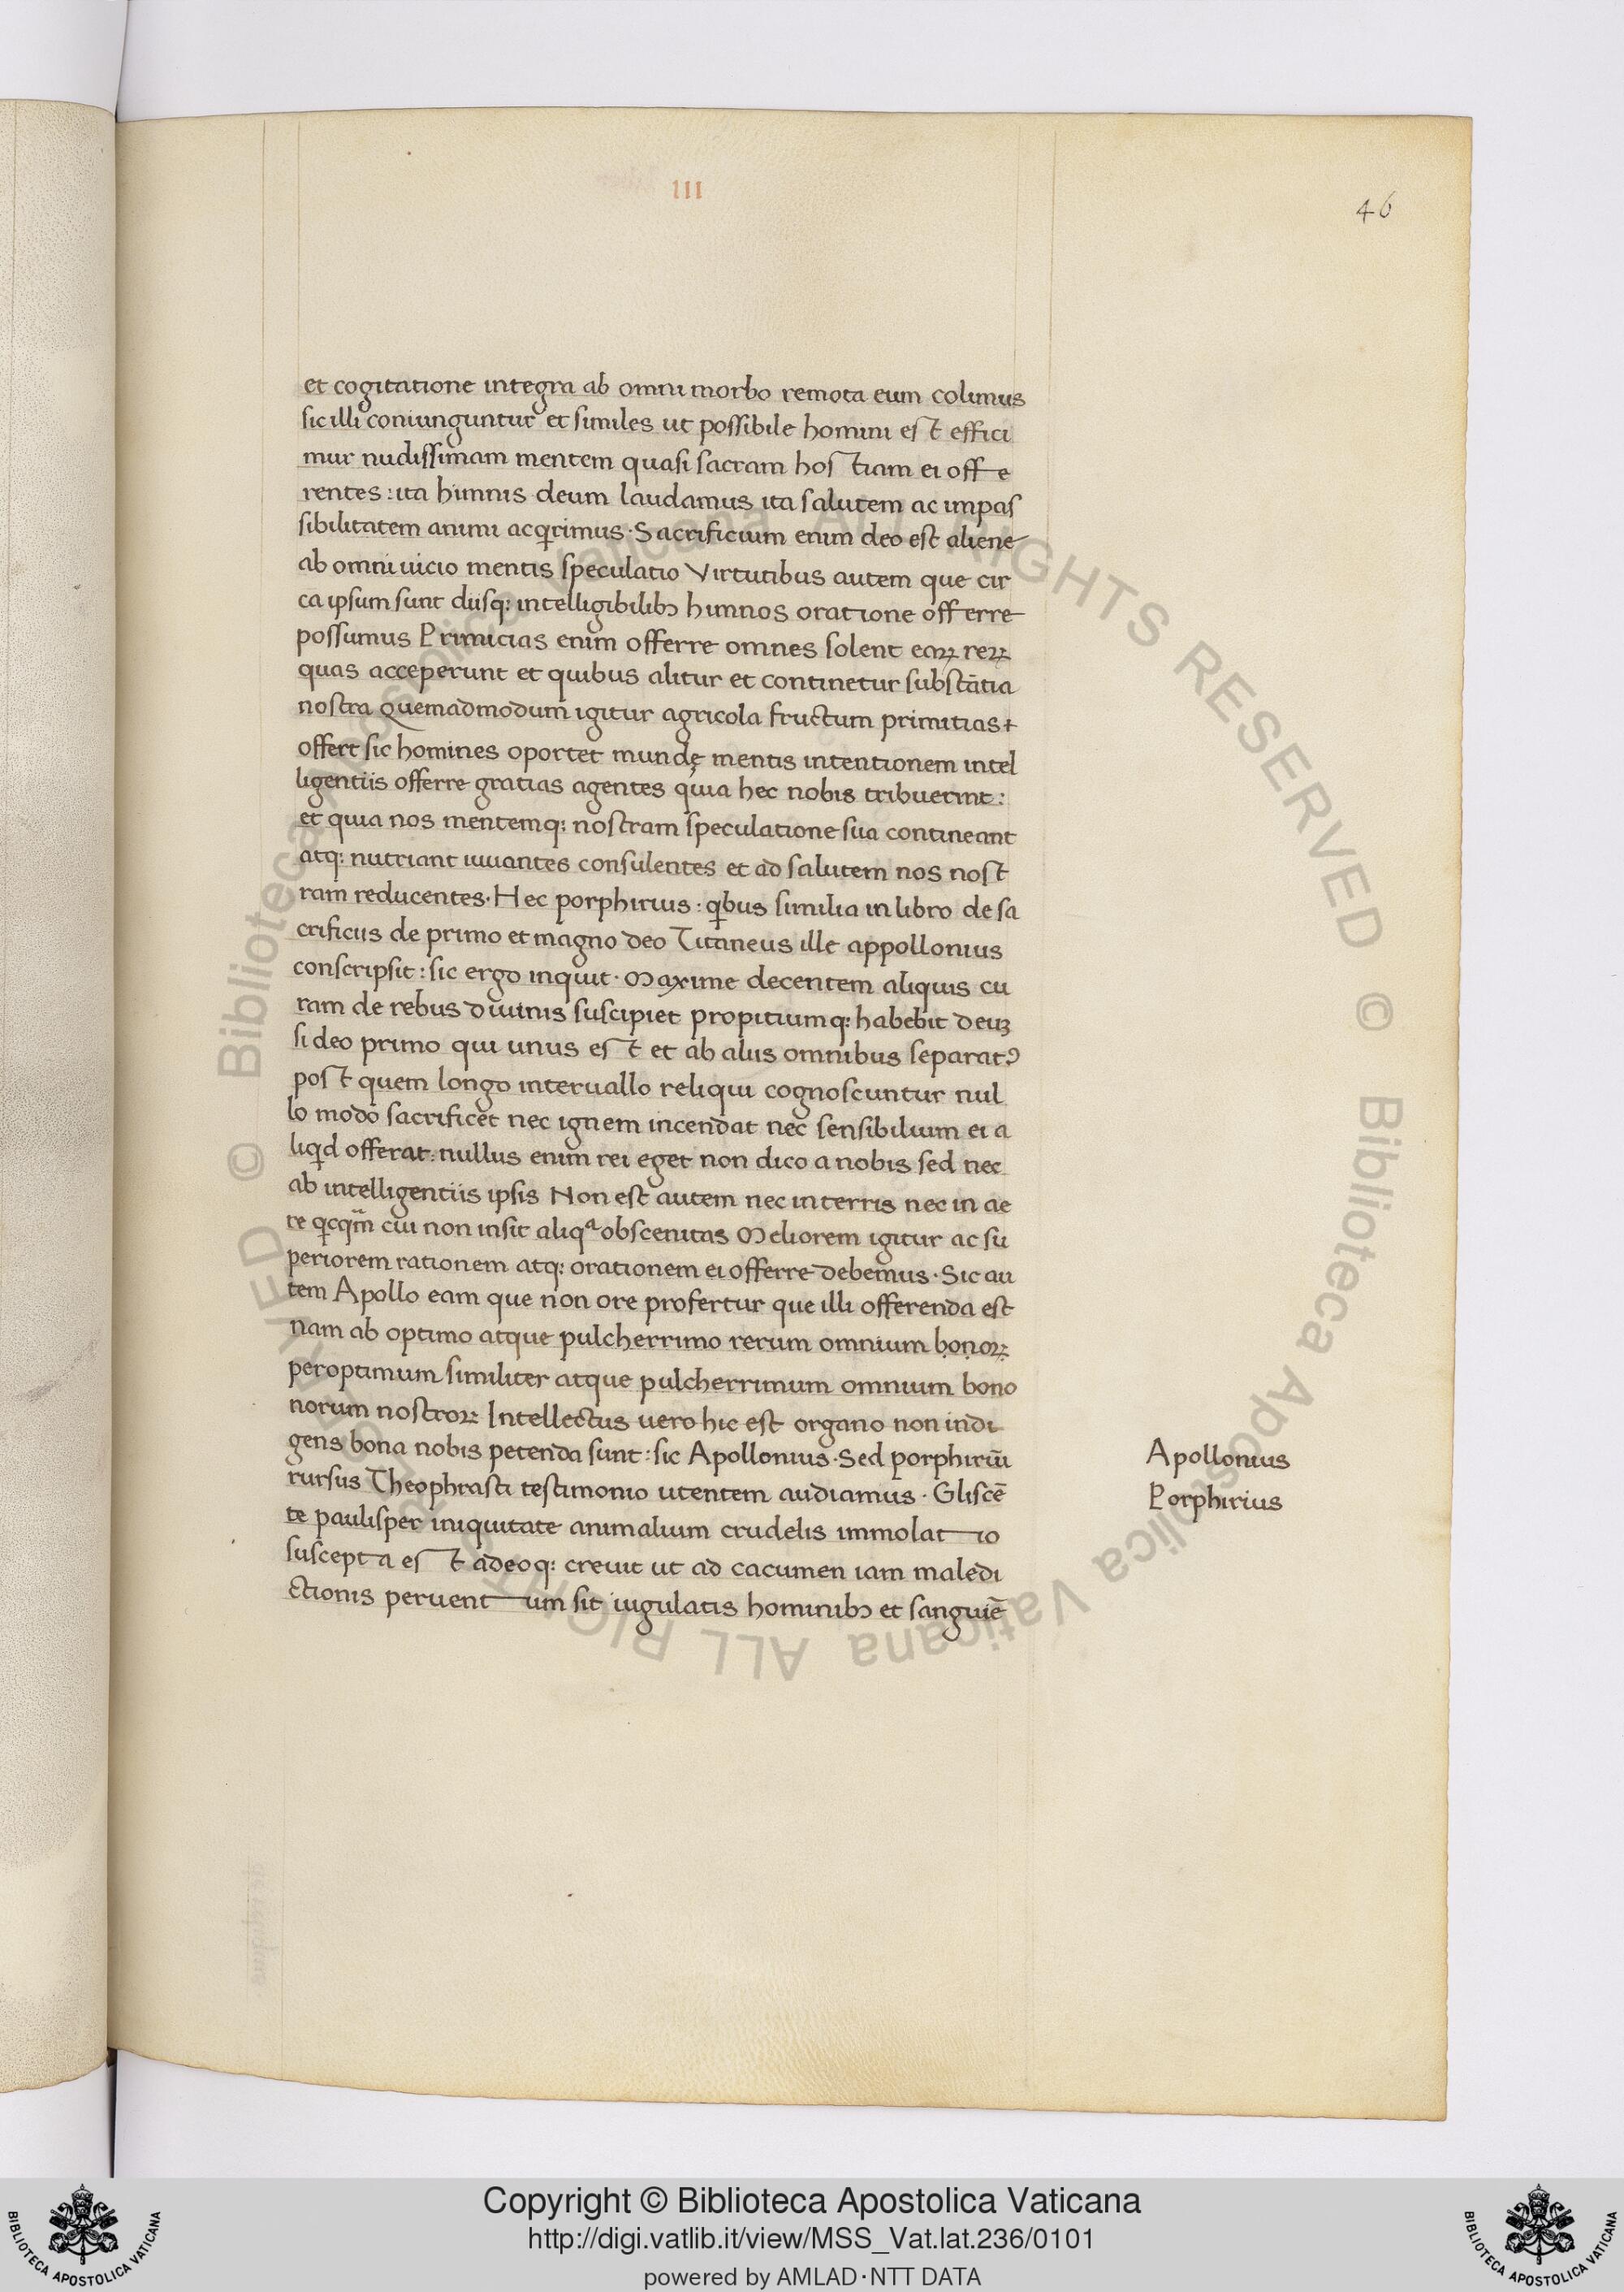 III
46
et cogitatione integra ab omni morbo remota eum colimus
sic illi coniunguntur et similes ut possibile homini est effici
mur nudissimam mentem quasi sacram hostiam ei offe
rentes : ita himnis deum laudamus ita salutem ac impas
sibilitatem animi acqrimus · Sacrificium enim deo est aliene
ab omni uicio mentis speculatio Virtutibus autem que cir
ca ipsum sunt diisq; intelligibilibꝫ himnos oratione offerre
possumus Primicias enim offerre omnes solent eaꝝ reꝝ
quas acceperunt et quibus alitur et continetur substātia
nostra Quemadmodum igitur agricola fructum primitias
offert sic homines oportet mundę mentis intentionem intel
ligentiis offerre gratias agentes quia hec nobis tribuerint :
et quia nos mentemq; nostram speculatione sua contineant
atq; nutriant iuuantes consulentes et ad salutem nos nost
ram reducentes · Hec porphirius : qibus similia in libro de sa
crificiis de primo et magno deo Titaneus ille appollonius
conscripsit : sic ergo inquit · Maxime decentem aliquis cu
ram de rebus diuinis suscipiet propitiumq; habebit deuꝫ
si deo primo qui unus est et ab aliis omnibus separatꝰ
post quem longo interuallo reliqui cognoscuntur nul
lo modo sacrificet nec ignem incendat nec sensibilium ei a
liqid offerat : nullus enim rei eget non dico a nobis sed nec
ab intelligentiis ipsis Non est autem nec in terris nec in ae
re qicq̃m cui non insit aliqᵃ obscenitas Meliorem igitur ac su
periorem rationem atq; orationem ei offerre debemus · Sic au
tem Apollo eam que non ore profertur que illi offerenda est
nam ab optimo atque pulcherrimo rerum omnium bonoꝝ
peroptimum similiter atque pulcherrimum omnium bono
norum nostroꝝ Intellectus uero hic est organo non indi
gens bona nobis petenda sunt : sic Apollonius · Sed porphiriū
rursus Theophrasti testimonio utentem audiamus · Gliscē
te paulisper iniquitate animalium crudelis immolatio
suscepta est adeoq; creuit ut ad cacumen iam maledi
ctionis peruentum sit iugulatis hominibꝫ et sanguiē
Apollonius
Porphirius
© Biblioteca Apostolica Vaticana ALL RIGHTS RESERVED © Biblioteca Apostolica Vaticana ALL RIGHTS RESERVED
Copyright © Biblioteca Apostolica Vaticana
http://digi.vatlib.it/view/MSS_Vat.lat.236/0101
powered by AMLAD·NTT DATA
BIBLIOTECA APOSTOLICA VATICANA
BIBLIOTECA APOSTOLICA VATICANA